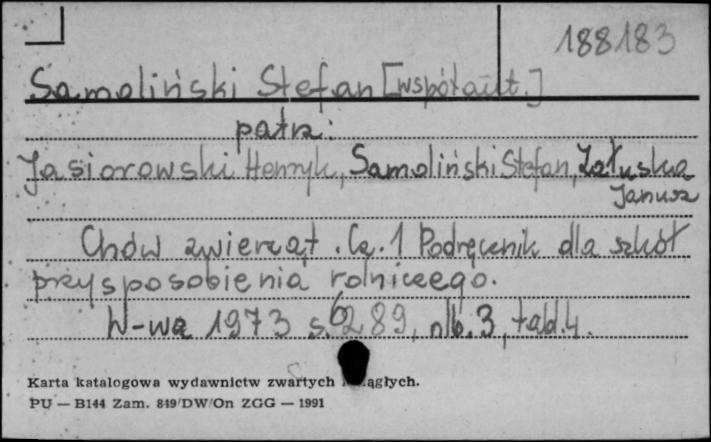 188183
Samoliński Stefan [współaut.]
patrz:
Jasiorowski Henryk, Samoliński Stefan, Załuska
Janusz
Chów zwierząt. Cz. 1 Podręcznik dla szkół
przysposobienia rolniczego.
W-wa 1973 s. 289, nlb. 3, tabl. 4.
Karta katalogowa wydawnictw zwartych ciągłych.
PU — B144 Zam. 849/DW/On ZGG — 1991